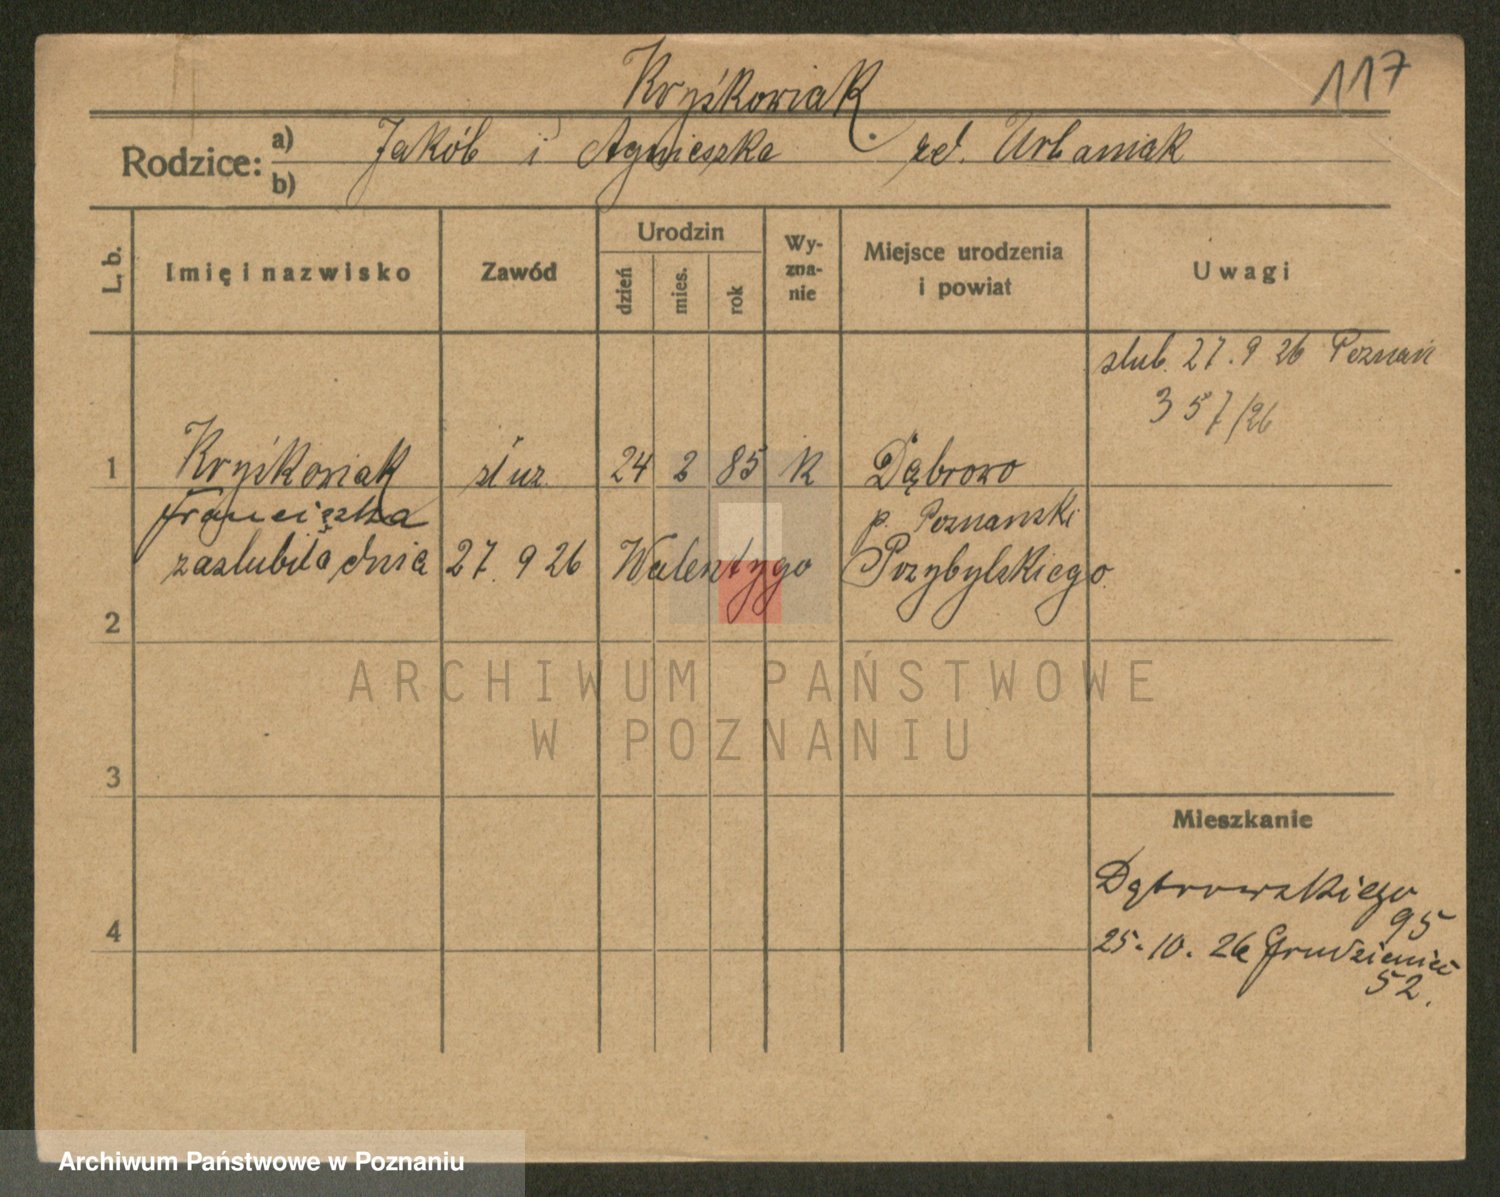 117
Kryśkowiak
Rodzice: a) Jakób i Agnieszka zd. Urbaniak
b)
L. b.
Imię i nazwisko
Zawód
Urodzin
dzień
mies.
rok
Wy-
zna-
nie
Miejsce urodzenia
i powiat
Uwagi
ślub. 27.9 26 Poznań
357/26
1 Kryśkowiak służ. 24 2 85 K Dąbrowo
Franciszka p. Poznański
zaślubiła dnia 27.9 26 Walentygo Przybylskiego
2
3
4
Mieszkanie
Dąbrowskiego
95
25.10.26 Grudzieniec
52.
ARCHIWUM PAŃSTWOWE
W POZNANIU
Archiwum Państwowe w Poznaniu